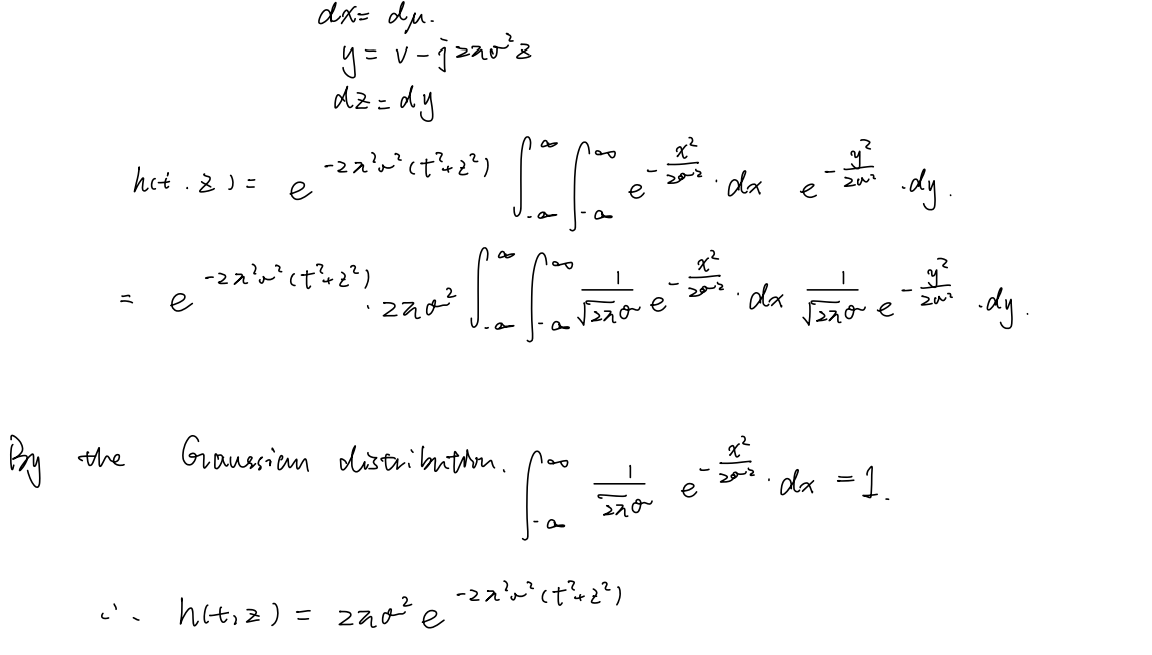 dx = dμ.
y = v - j2πσ²z
dz = dy
h(t, z) = e^{-2π²σ²(t²+z²)} ∫_{-∞}^{∞} ∫_{-∞}^{∞} e^{-x²/2σ²} · dx e^{-y²/2σ²} · dy.
= e^{-2π²σ²(t²+z²)} · 2πσ² ∫_{-∞}^{∞} ∫_{-∞}^{∞} 1/(√2π σ) e^{-x²/2σ²} · dx 1/(√2π σ) e^{-y²/2σ²} · dy.
By the Gaussian distribution. ∫_{-∞}^{∞} 1/(√2π σ) e^{-x²/2σ²} · dx = 1.
∴ h(t, z) = 2πσ² e^{-2π²σ²(t²+z²)}